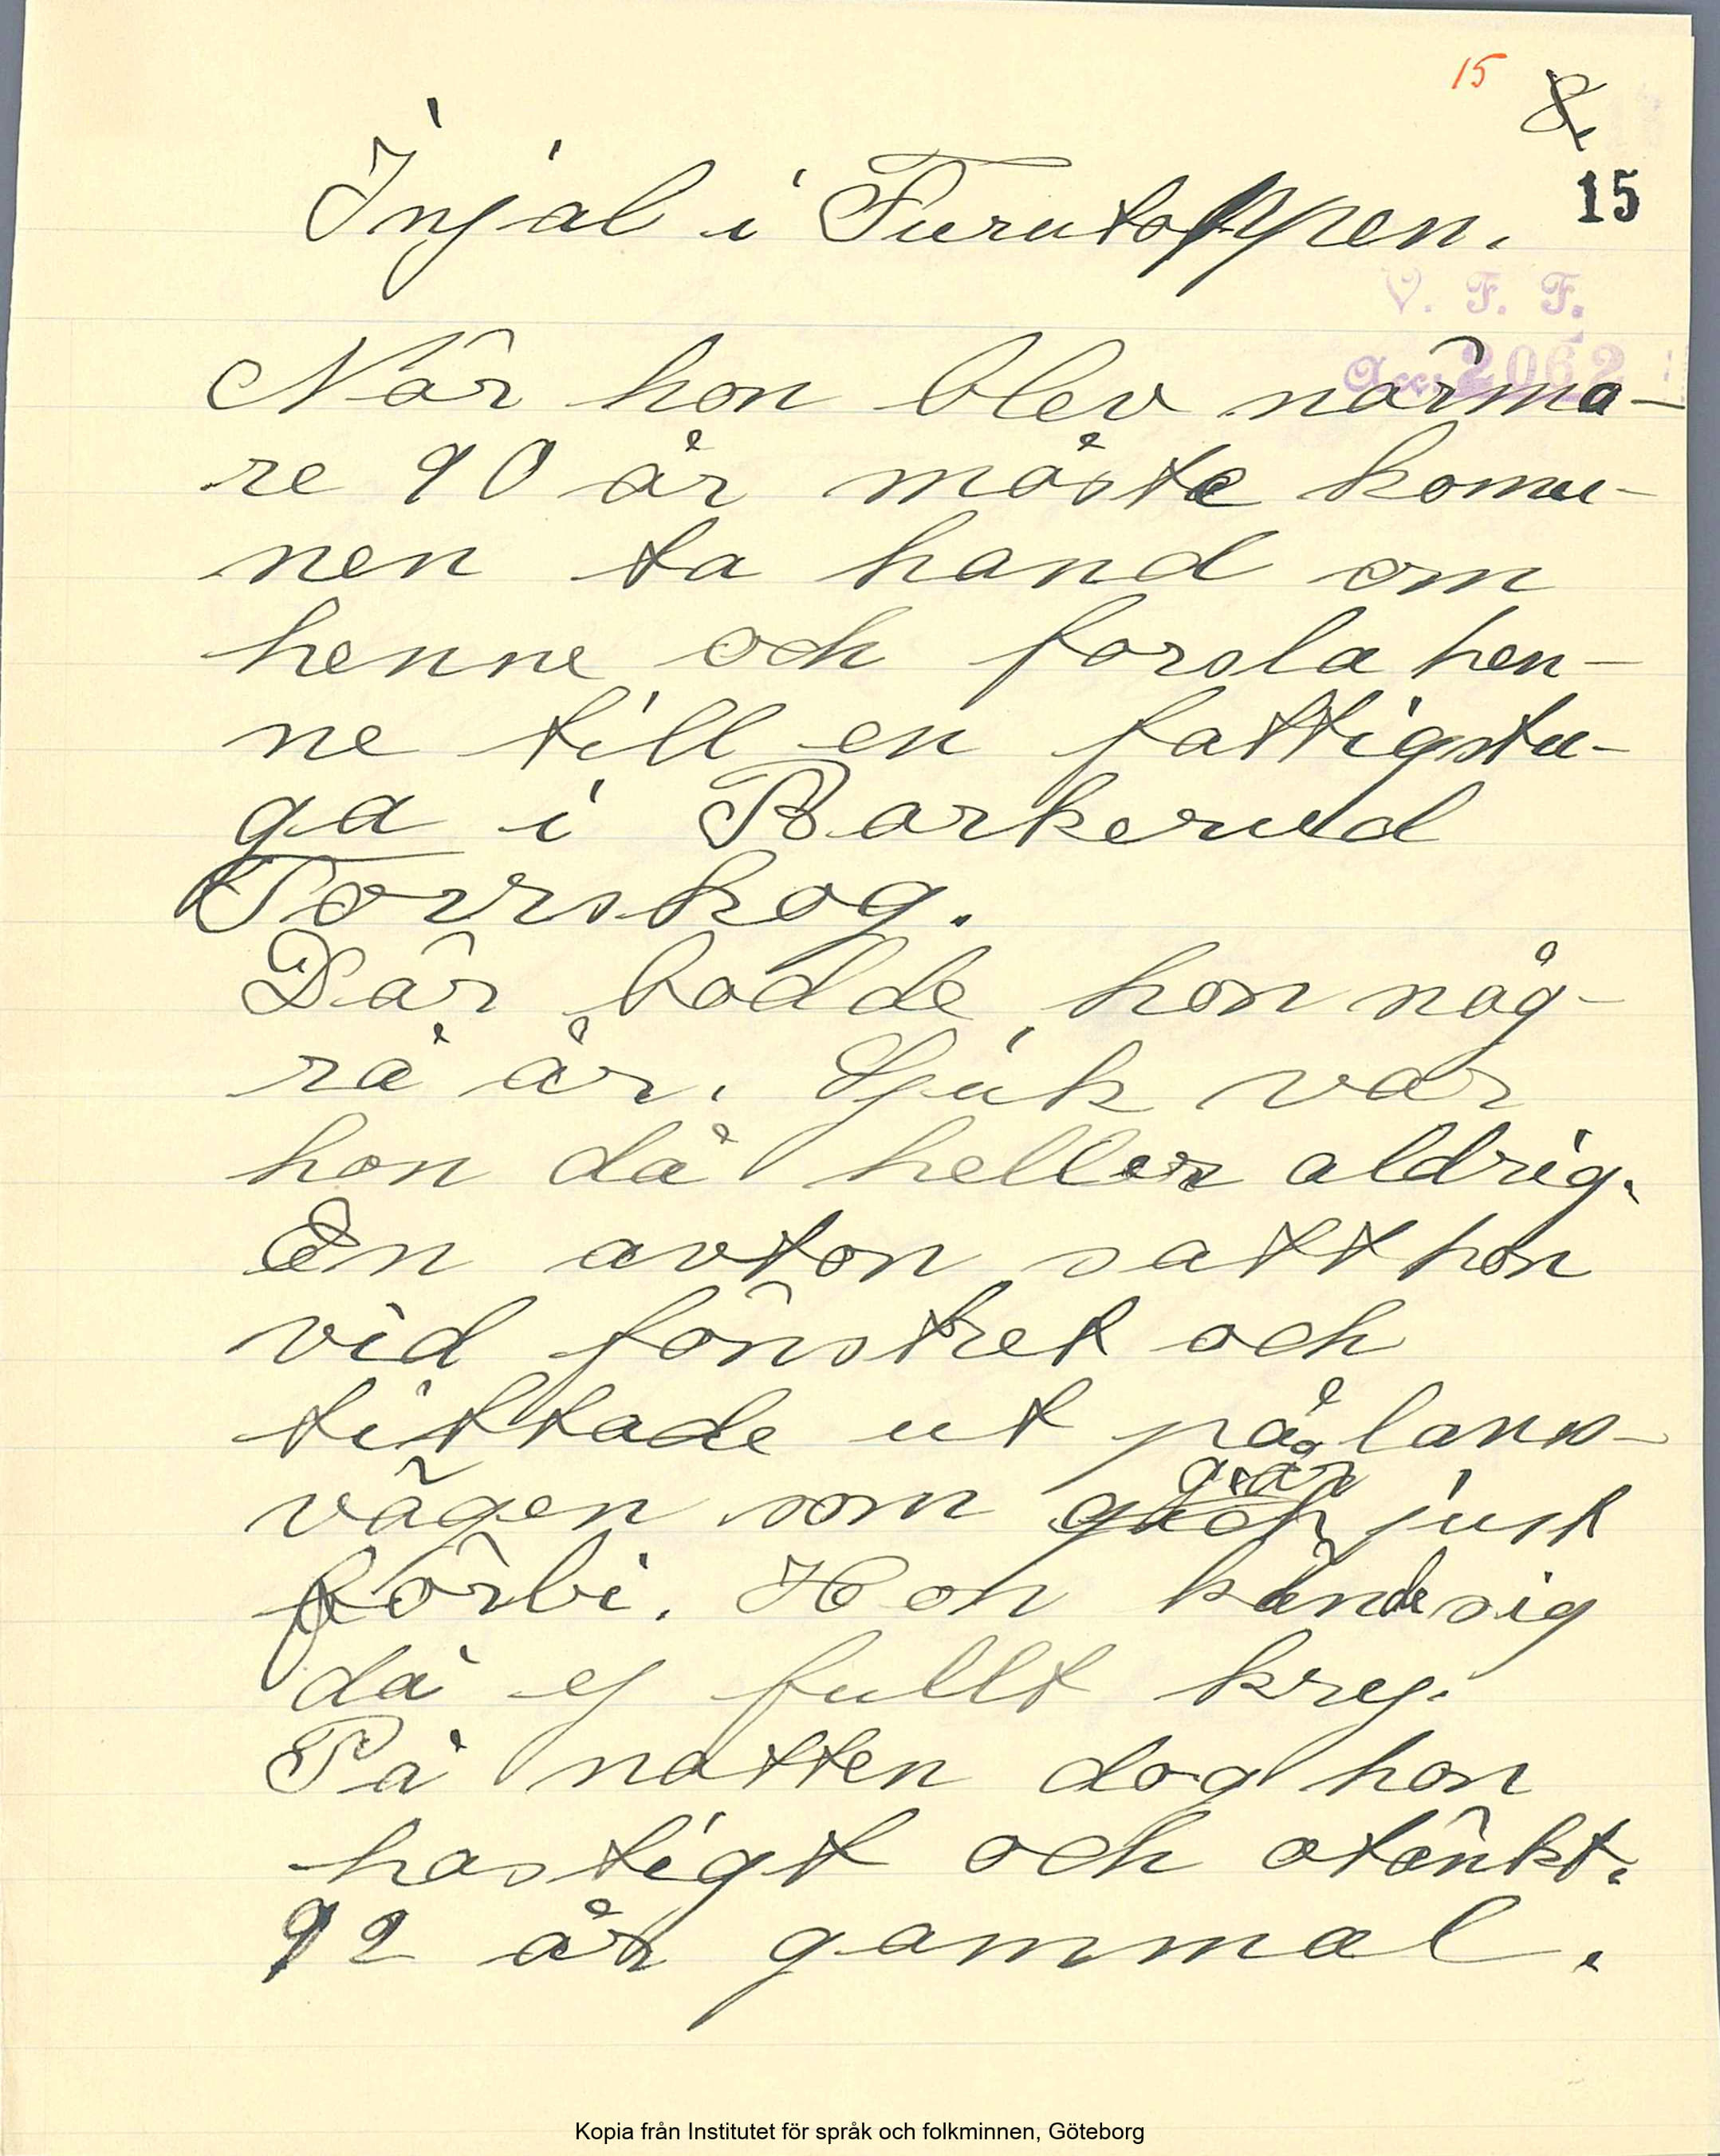 15
8.
15
Injal i Furutoppen.
V. F. F.
Acc. 2062
När hon blev närma-
re 90 år måste komu-
nen ta hand om
henne och forsla hen-
ne till en fattigstu-
ga i Barkerud
Torrskog.
Där bodde hon någ-
ra år. Sjuk var
hon då heller aldrig.
En avton satt hon
vid fönstret och
tittade ut på lans-
vägen som går just
förbi. Hon kände sig
då ej fullt kry.
På natten dog hon
hastigt och otänkt.
92 år gammal.
Kopia från Institutet för språk och folkminnen, Göteborg